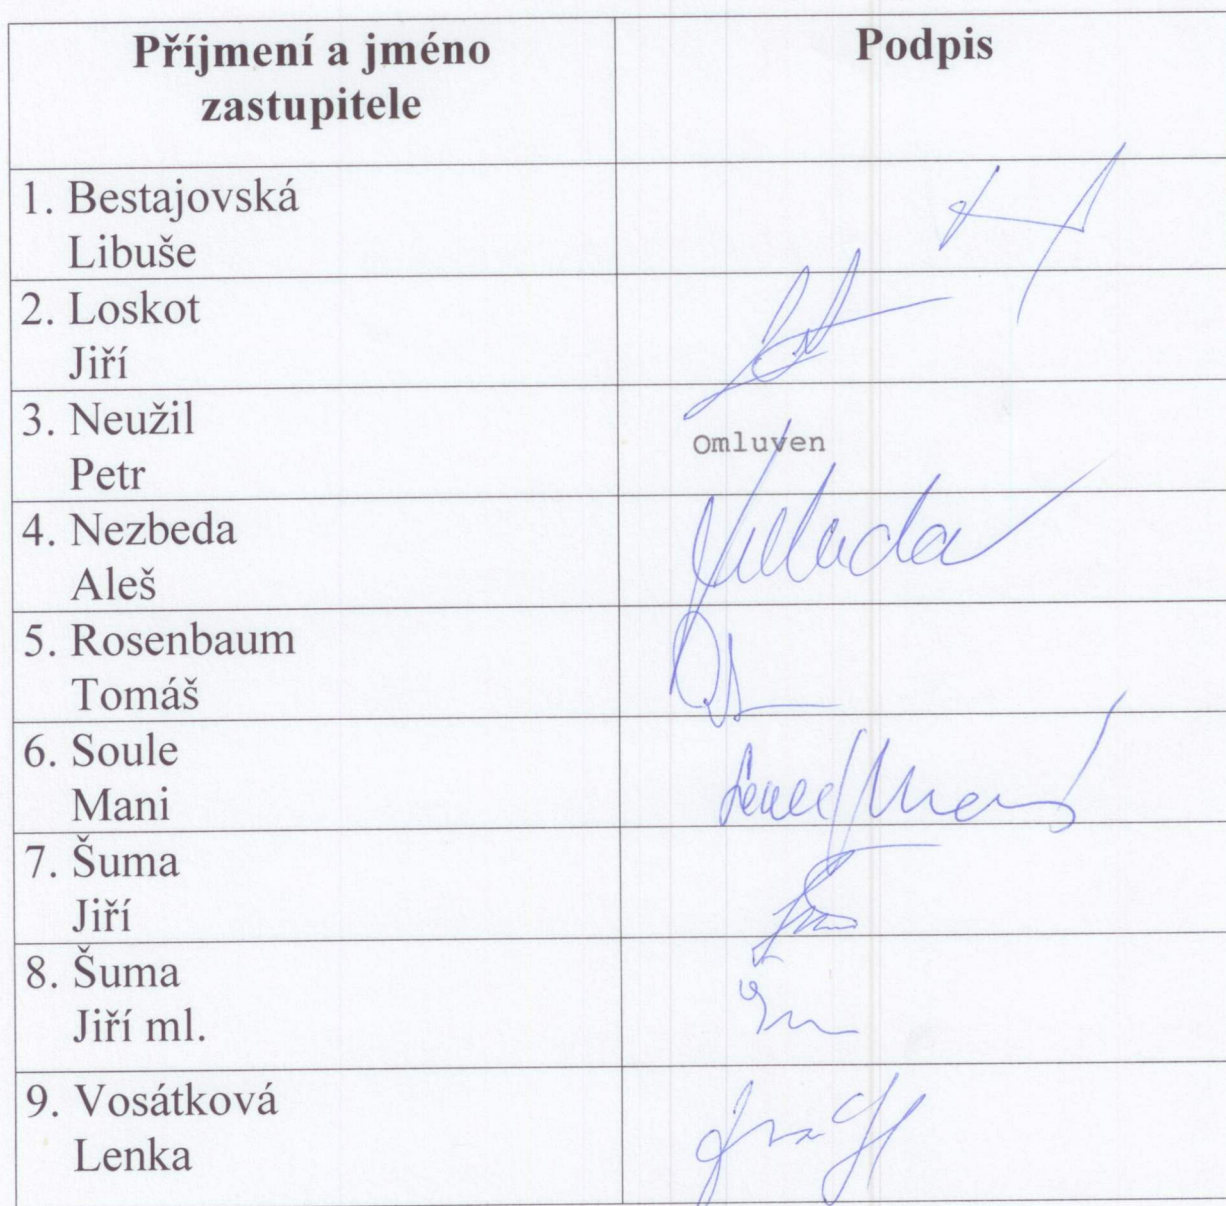 Příjmení a jméno
zastupitele
Podpis
1. Bestajovská
Libuše
2. Loskot
Jiří
3. Neužil
Petr
Omluven
4. Nezbeda
Aleš
5. Rosenbaum
Tomáš
6. Soule
Mani
7. Šuma
Jiří
8. Šuma
Jiří ml.
9. Vosátková
Lenka